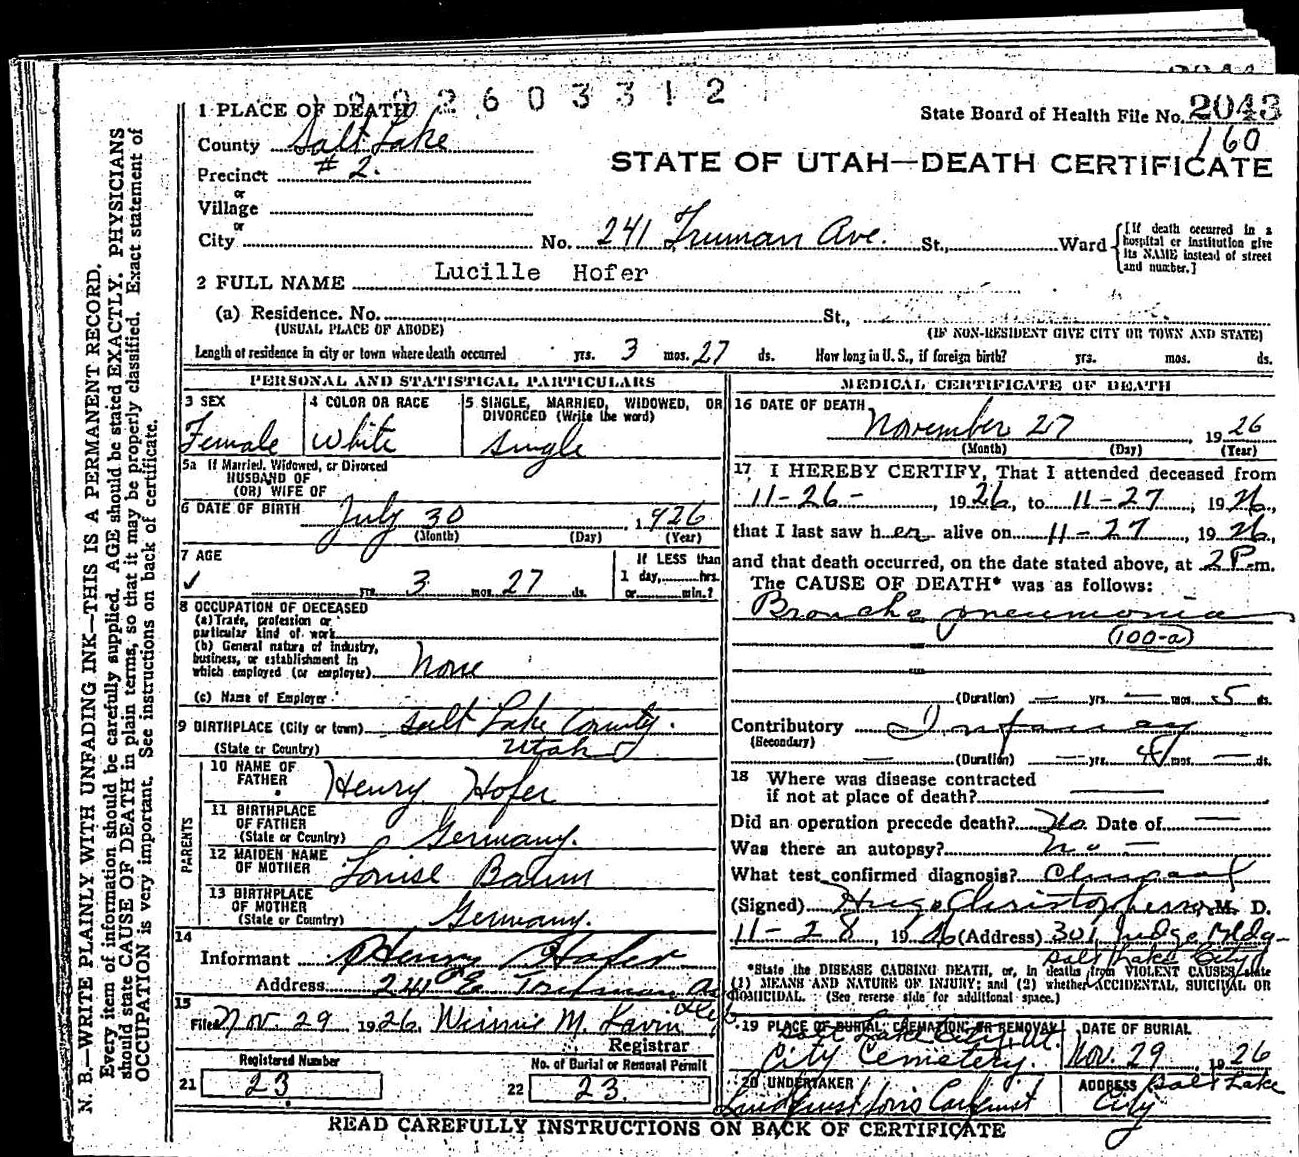 2603312
1 PLACE OF DEATH
State Board of Health File No. 2043
160
County Salt Lake
STATE OF UTAH—DEATH CERTIFICATE
Precinct # 2.
or
Village
or
City No. 241 Truman Ave. St., Ward
[If death occurred in a hospital or institution give its NAME instead of street and number.]
2 FULL NAME Lucille Hofer
(a) Residence. No. St.,
(USUAL PLACE OF ABODE) (IF NON-RESIDENT GIVE CITY OR TOWN AND STATE)
Length of residence in city or town where death occurred yrs. 3 mos. 27 ds. How long in U. S., if foreign birth? yrs. mos. ds.
PERSONAL AND STATISTICAL PARTICULARS
3 SEX
Female
4 COLOR OR RACE
White
5 SINGLE, MARRIED, WIDOWED, OR
DIVORCED (Write the word)
Single
5a If Married, Widowed, or Divorced
HUSBAND OF
(OR) WIFE OF
6 DATE OF BIRTH July 30, 1926
(Month) (Day) (Year)
7 AGE
✓ yrs. 3 mos. 27 ds.
If LESS than
1 day, hrs.
or min.?
8 OCCUPATION OF DECEASED
(a) Trade, profession or
particular kind of work
(b) General nature of industry,
business, or establishment in
which employed (or employer) None
(c) Name of Employer
9 BIRTHPLACE (City or town) Salt Lake County.
(State or Country) Utah
PARENTS
10 NAME OF
FATHER Henry Hofer
11 BIRTHPLACE
OF FATHER
(State or Country) Germany.
12 MAIDEN NAME
OF MOTHER Louise Baum
13 BIRTHPLACE
OF MOTHER
(State or Country) Germany.
14
Informant Henry Hofer
Address 241 E. Truman Ave
15
Filed Nov. 29 1926. Winnie M. Lavin
Registrar
Registered Number
21 23
No. of Burial or Removal Permit
22 23.
MEDICAL CERTIFICATE OF DEATH
16 DATE OF DEATH
November 27, 1926
(Month) (Day) (Year)
17 I HEREBY CERTIFY, That I attended deceased from
11-26-, 1926, to 11-27, 1926,
that I last saw her alive on 11-27, 1926,
and that death occurred, on the date stated above, at 2 P.m.
The CAUSE OF DEATH* was as follows:
Broncho pneumonia
(100-a)
(Duration) — yrs. — mos. 5 ds.
Contributory Infancy
(Secondary)
(Duration) — yrs. 4 mos. — ds.
18 Where was disease contracted
if not at place of death?
Did an operation precede death? No. Date of —
Was there an autopsy? No —
What test confirmed diagnosis? Clinical
(Signed) Hugo Christopherson, M. D.
11-28, 1926 (Address) 301 Judge Bldg-
Salt Lake City
*State the DISEASE CAUSING DEATH, or, in deaths from VIOLENT CAUSES, state
(1) MEANS AND NATURE OF INJURY; and (2) whether ACCIDENTAL, SUICIDAL OR
HOMICIDAL. (See reverse side for additional space.)
19 PLACE OF BURIAL, CREMATION, OR REMOVAL
Salt Lake City, Ut.
City Cemetery.
DATE OF BURIAL
Nov. 29 1926
20 UNDERTAKER
ADDRESS Salt Lake
City
READ CAREFULLY INSTRUCTIONS ON BACK OF CERTIFICATE
N. B.—WRITE PLAINLY WITH UNFADING INK—THIS IS A PERMANENT RECORD.
Every item of information should be carefully supplied. AGE should be stated EXACTLY. PHYSICIANS
should state CAUSE OF DEATH in plain terms, so that it may be properly classified. Exact statement of
OCCUPATION is very important. See instructions on back of certificate.